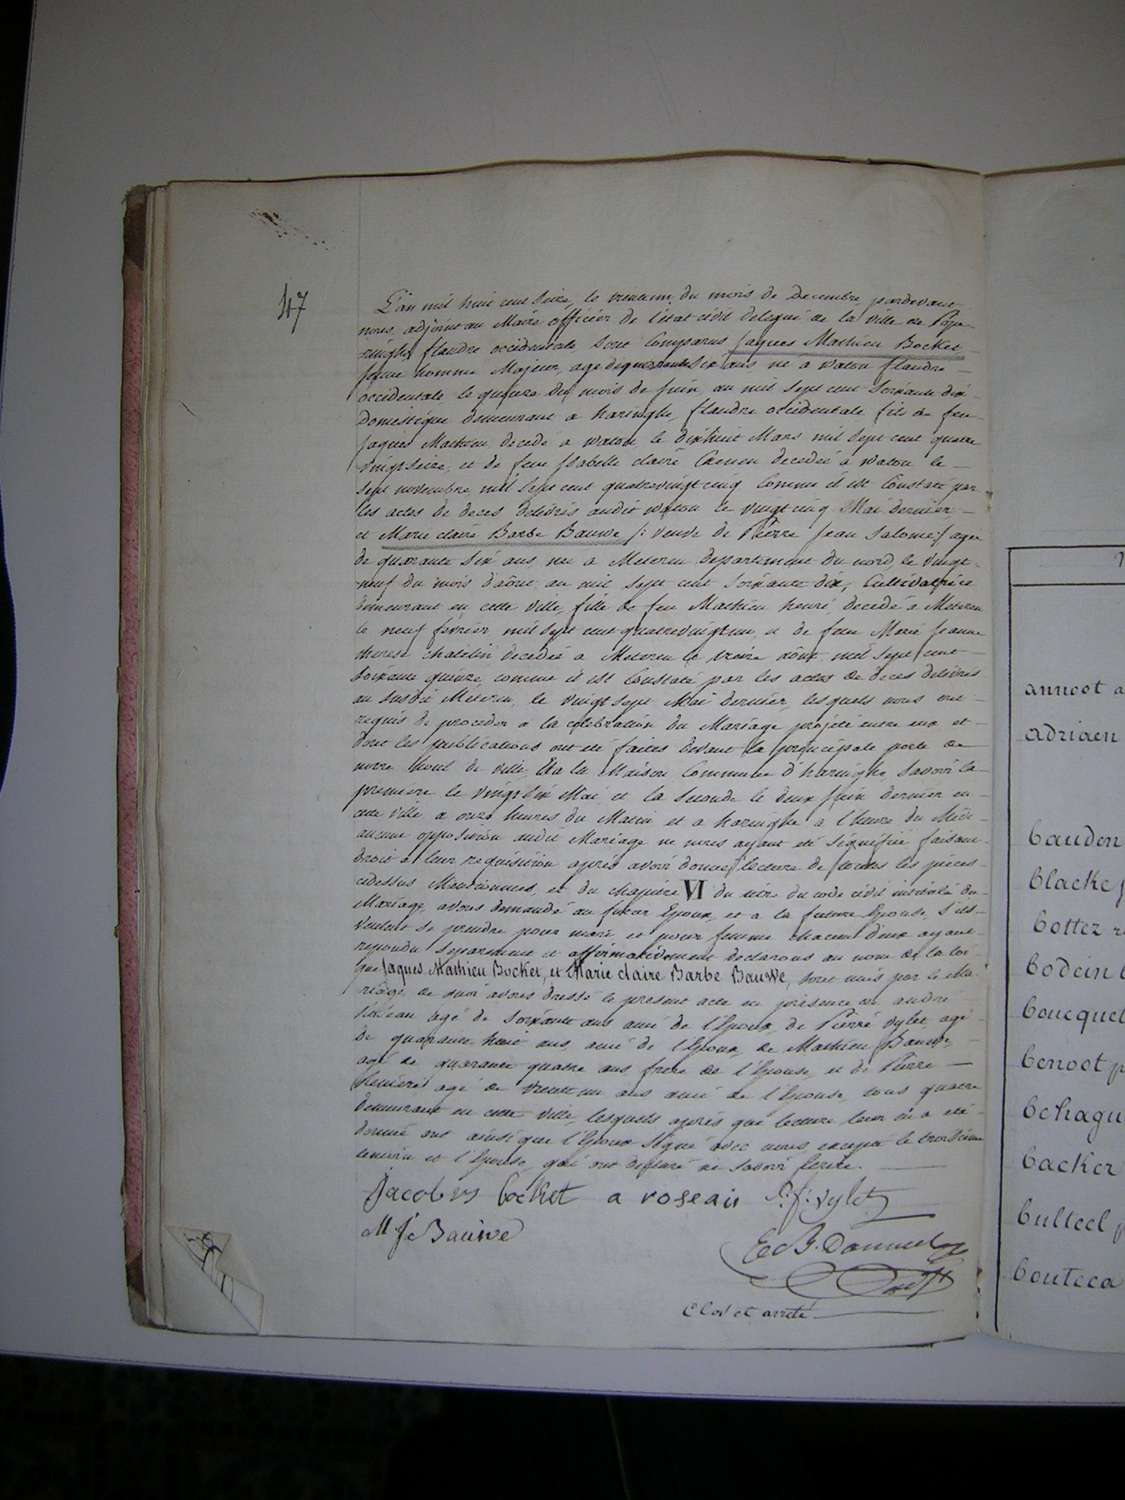 47
L'an mil huit cent seize, le trentieme du mois de Decembre, pardevant
nous adjoint au Maire officier de l'etat civil delegué de la ville de Pope-
ringhe flandre occidentale sont comparus Jaques Mathieu Bocket
jeune homme Majeur, age de quarante six ans né a watou flandre
occidentale le quinze du mois de juin an mil sept cent soixante dix
Domestique demeurant a haringhe flandre occidentale fils de feu
Jaques Mathieu decedé a watou le dixhuit Mars mil sept cent quatre
vingt seize, et de feue Isabelle claire decedée a watou le
sept novembre mil sept cent quatrevingt cinq comme il est constaté par
les actes de deces delivrés audit watou le vingt cinq Mai dernier
et Marie claire Barbe Bauwe /: veuve de Pierre Jean Salomé :/ agee
de quarante six ans, née a Meteren departement du nord, le vingt
neuf du mois d'août an mil sept cent soixante dix, Cultivatrice
demeurant en cette ville, fille de feu Mathieu henri decedé a Meteren
le neuf fevrier mil sept cent quatrevingt un, et de feue Marie Jeanne
therese chatelin decedée a Meteren le treize août mil sept cent
soixante quinze, comme il est constaté par les actes de deces delivrés
au susdit Meteren, le vingt sept Mai dernier, lesquels nous ont
requis de proceder a la celebration du Mariage projeté entre eux et
dont les publications ont été faites devant la principale porte de
notre hotel de ville, et a la Maison Commune d'haringhe, savoir la
premiere le vingt six Mai et la seconde le deux juin dernier en
cette ville a onze heures du Matin et a haringhe a l'heure du Midi
aucune opposition audit Mariage ne nous ayant été signifiée faisant
droit a leur requisition après avoir donné lecture de toutes les pièces
cidessus Mentionnées, et du chapitre VI du titre du code civil intitulé du
Mariage, avons demandé au futur Epoux, et a la future Epouse, s'ils
veulent se prendre pour mari et pour femme chacun d'eux ayant
repondu separement et affirmativement declarons au nom de la loi
que Jaques Mathieu Bocket, et Marie claire Barbe Bauwe, sont unis par le Ma-
riage de quoi avons dressé le present acte en presence de andré
agé de soixante ans ami de l'Epoux, de Pierre vylet, agé
de quarante huit ans, ami de l'Epoux, de Mathieu Bauwe,
agé de quarante quatre ans frere de l'Epouse, et de Pierre
agé de trente un ans ami de l'Epouse, tous quatre
demeurant en cette ville, lesquels après que lecture leur en a été
donné ont ainsi que l'Epoux signé avec nous, excepté le troisieme
temoin et l'Epouse, qui ont declaré ne savoir ecrire.
Jacobus bocket a roseau P: f: vylet
M J: Bauwe
Clos et arreté
annoot
adriaen
bauden
blacke
bottez
bodein
boucquet
benoot
behagu
backer
bulteel
bouteca